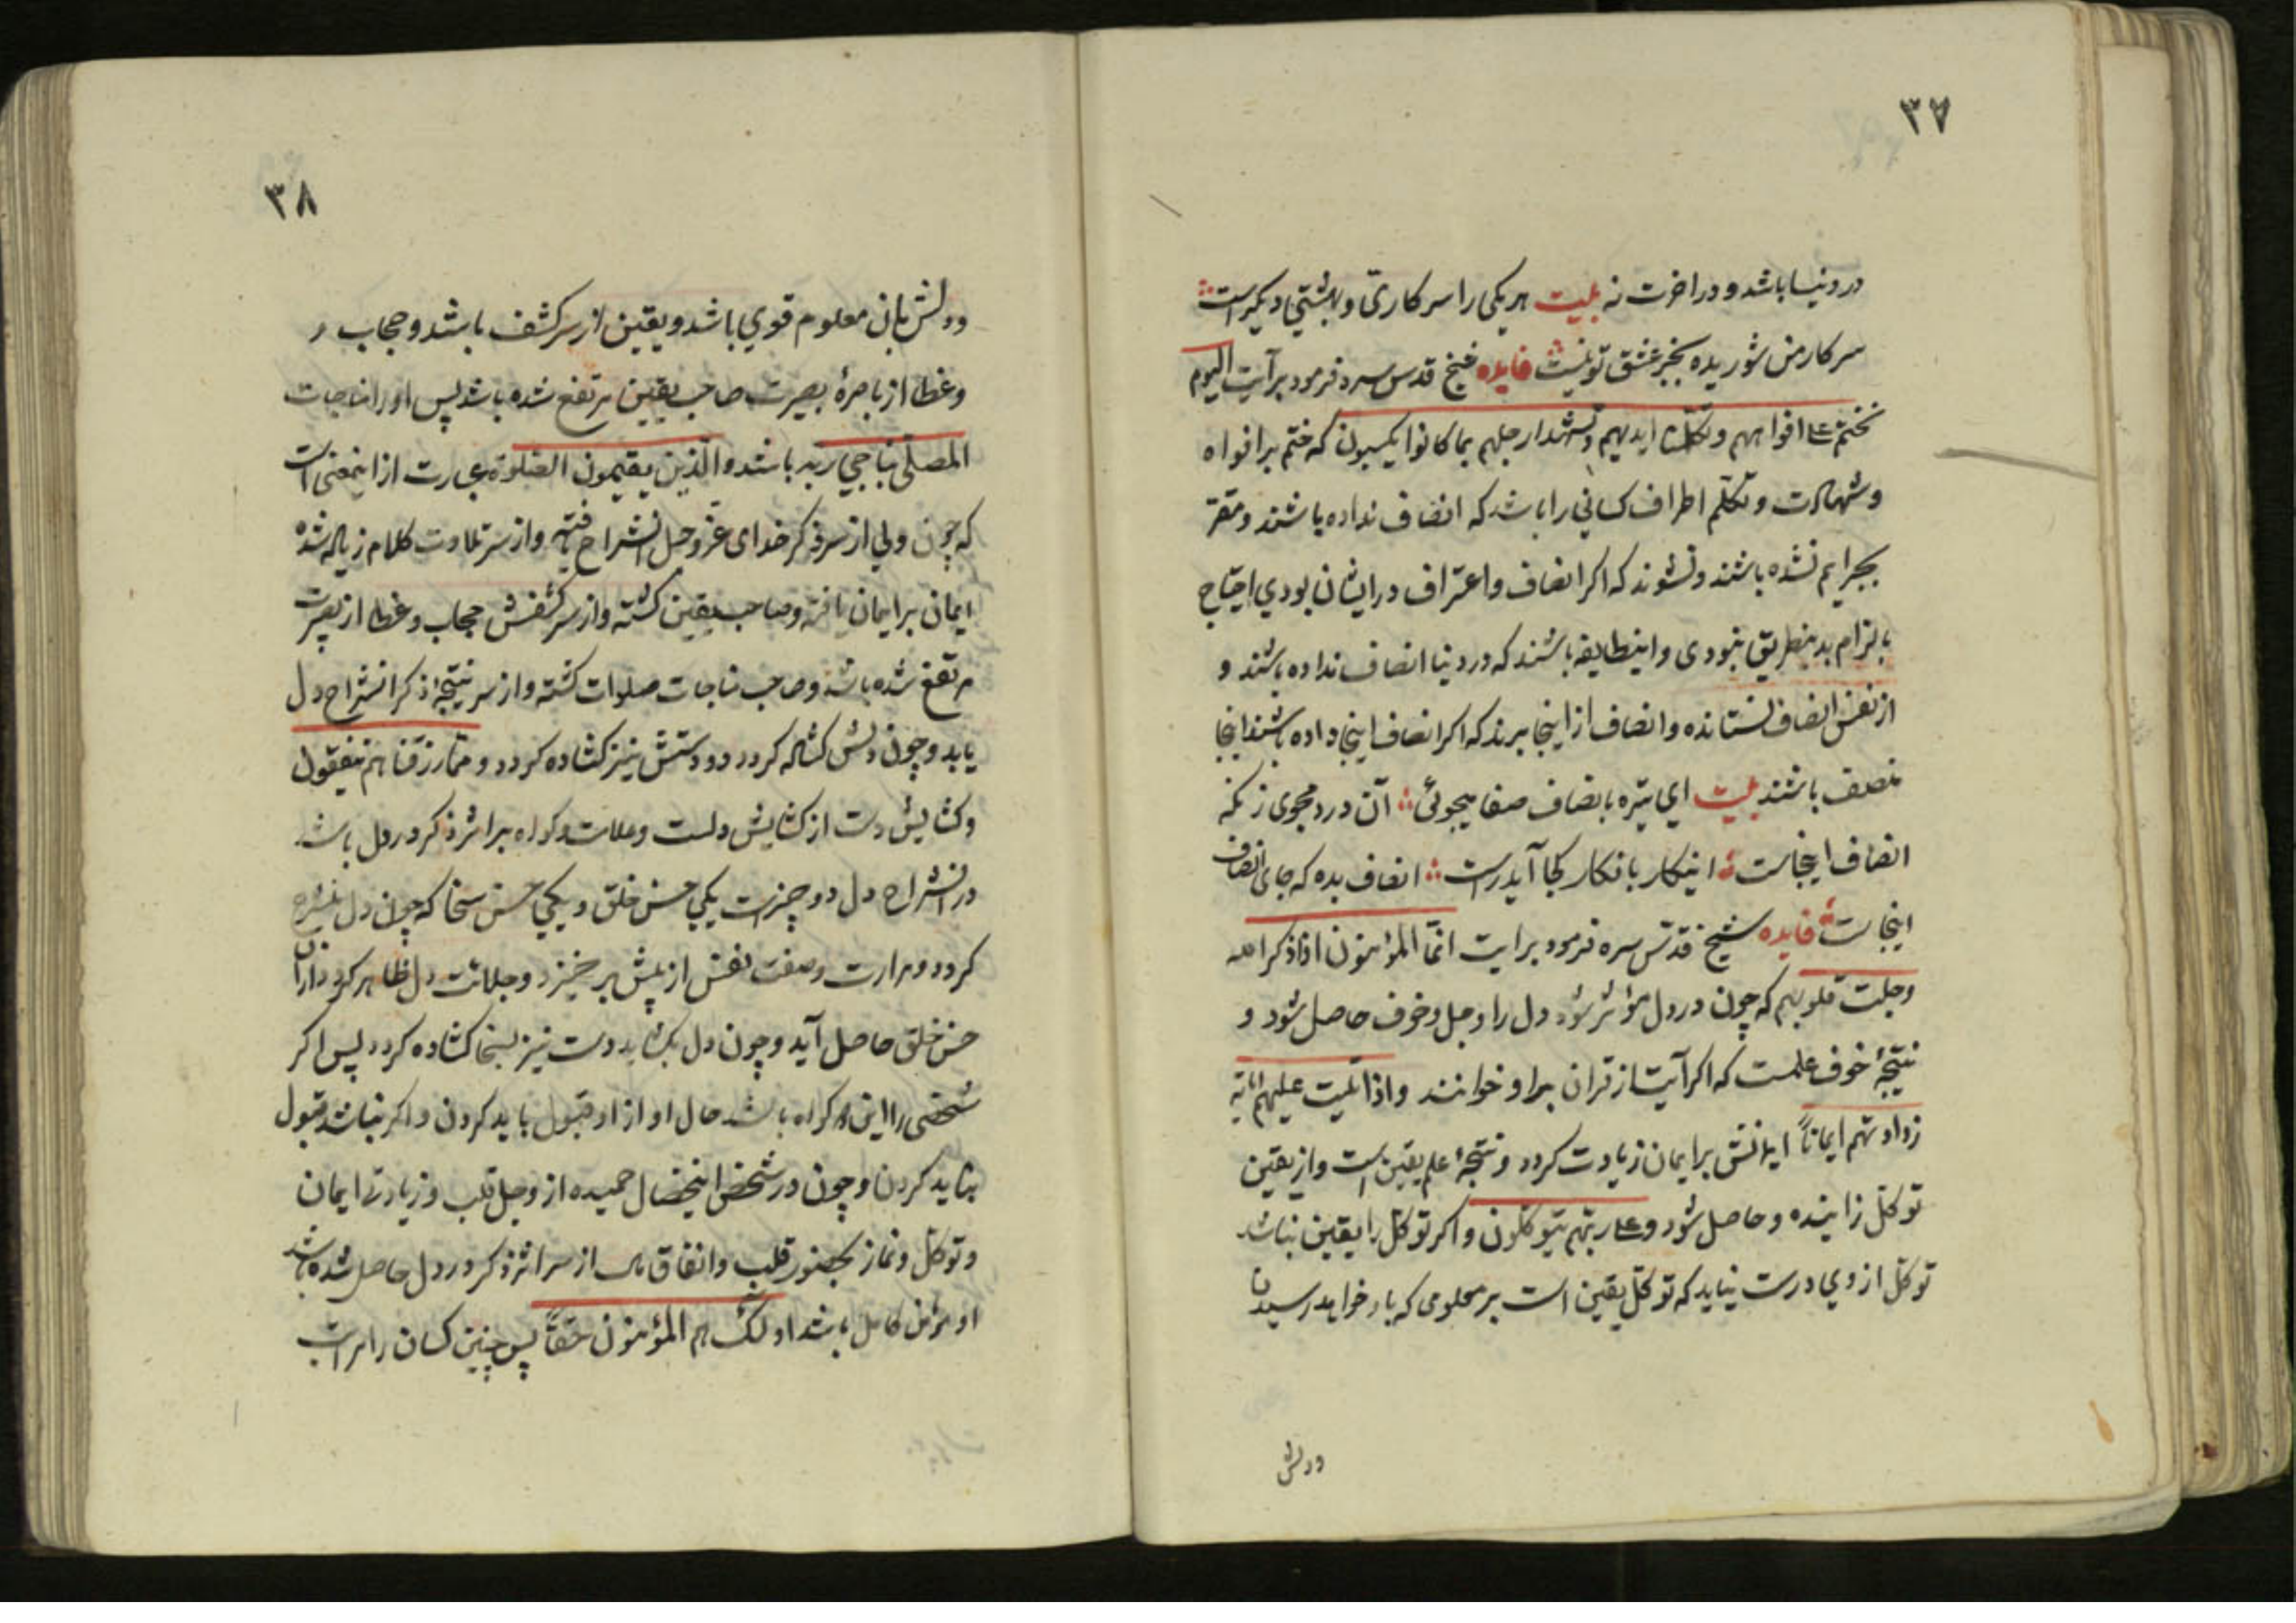 ۳۷
در دنیا باشد و در اخرت نه بیت هر یکی را سر کاری و بهشتی دیگر است
سرکار من شوریده بجز عشق تو نیست فایده شیخ قدس سره فرمود بر آیت الیوم
نختم علی افواههم و تکلمنا ایدیهم و تشهد ارجلهم بما کانوا یکسبون که ختم بر افواه
و شهادت و تکلم اطراف کسانی را باشد که انصاف نداده باشند و مقر
بجرایم نشده باشند و نشوند که اکر انصاف و اعتراف در ایشان بودی احتیاج
بالزام بدینطریق نبودی و اینطایفه باشند که در دنیا انصاف نداده باشند و
از نفس انصاف نستانده و انصاف از اینجا برند که اکر انصاف اینجا داده باشند انجا
منصف باشند بیت ای تیره بانصاف صفا میجوئی آن درد مجوی زنکه
انصاف اینجاست اینکار بانکار کجا آید راست انصاف بده که جای انصاف
اینجاست فایده شیخ قدس سره فرمود بر ایت انما المؤمنون اذا ذکر الله
وجلت قلوبهم که چون در دل مؤثر شود دل را وجل و خوف حاصل شود و
نتیجۀ خوف علمست که اکر آیت از قران بر او خوانند و اذا تلیت علیهم ایاته
زادتهم ایماناً ایمانش بر ایمان زیادت کردد و نتیجۀ علم یقین است و از یقین
توکل زاینده و حاصل شود و علی ربهم یتوکلون و اکر توکل را یقین نباشد
توکل از وی درست نیاید که توکل یقین است بر معلومی که باو خواهد رسیدن
و دلش
۳۸
و دلش بان معلوم قوی باشد و یقین از سر کشف باشد و حجاب
و غطا از باصرۀ بصیرت صاحب یقین مرتفع شده باشد پس او را مناجات
المصلی یناجی ربه باشد و الذین یقیمون الصلوة عبارت از اینمعنی است
که چون ولی از سر ذکر خدای عز و جل انشراح یافته و از سر تلاوت کلام زیاله شده
ایمان بر ایمان یافته و صاحب یقین کشته و از سر کشفش حجاب و غطا از بصیرت
مرتفع شده باشد و صاحب مناجات صلوات کشته و از سر نتیجۀ ذکر انشراح دل
یابد و چون دلش کشاده کردد دو دستش نیز کشاده کردد و مما رزقناهم ینفقون
و کشایش دست از کشایش دلست و علامت و کواه بر اثر ذکر در دل باشد
در انشراح دل دو چیزست یکی حسن خلق و یکی حسن سخا که چون دل منشرح
کردد و مرارت و صفت نفس از پیش بر خیزد و حلاوت دل ظاهر کردد از آن
حسن خلق حاصل آید و چون دل بکشاید دست نیز بسخا کشاده کردد پس اکر
شخصی را این دو کواه باشد حال او از او قبول باید کردن و اکر نباشد قبول
نباید کردن و چون در شخص اینخصال حمیده از وجل قلب و زیادت ایمان
و توکل و نماز بحضور قلب و انفاق مال از سر اثر ذکر در دل حاصل شده باشد
او مؤمن کامل باشد اولئک هم المؤمنون حقاً پس چنین کسان را مراتب